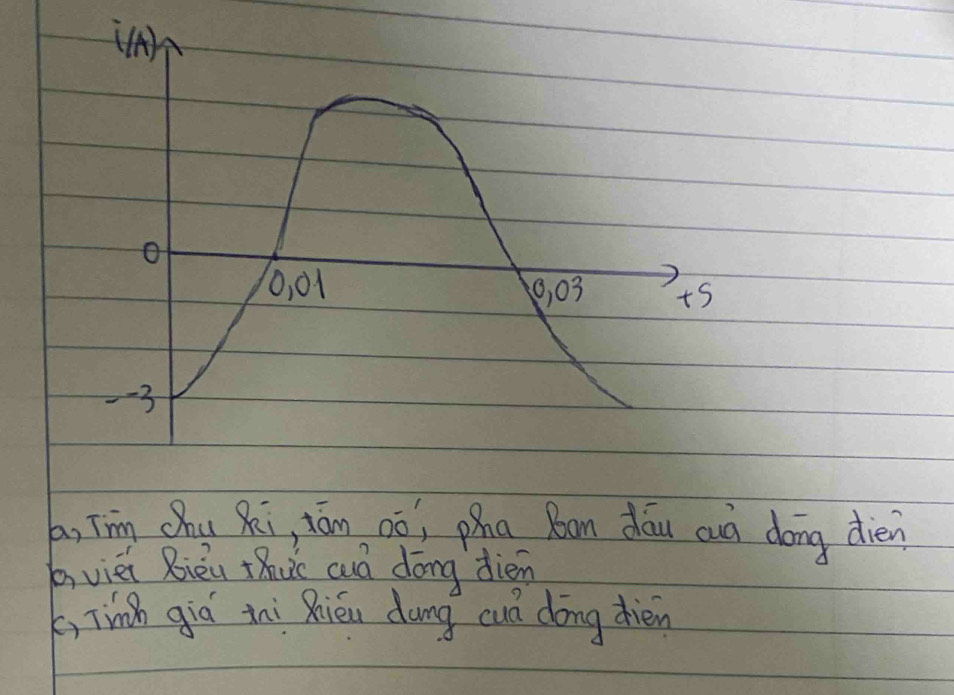 i(A)
0
0,01
0,03
t S
-3
a, Tìm chu kì, tần số, pha ban đầu của dòng điện
b, viết biểu thức của dòng điện
c, Tính giá trị hiệu dụng của dòng điện